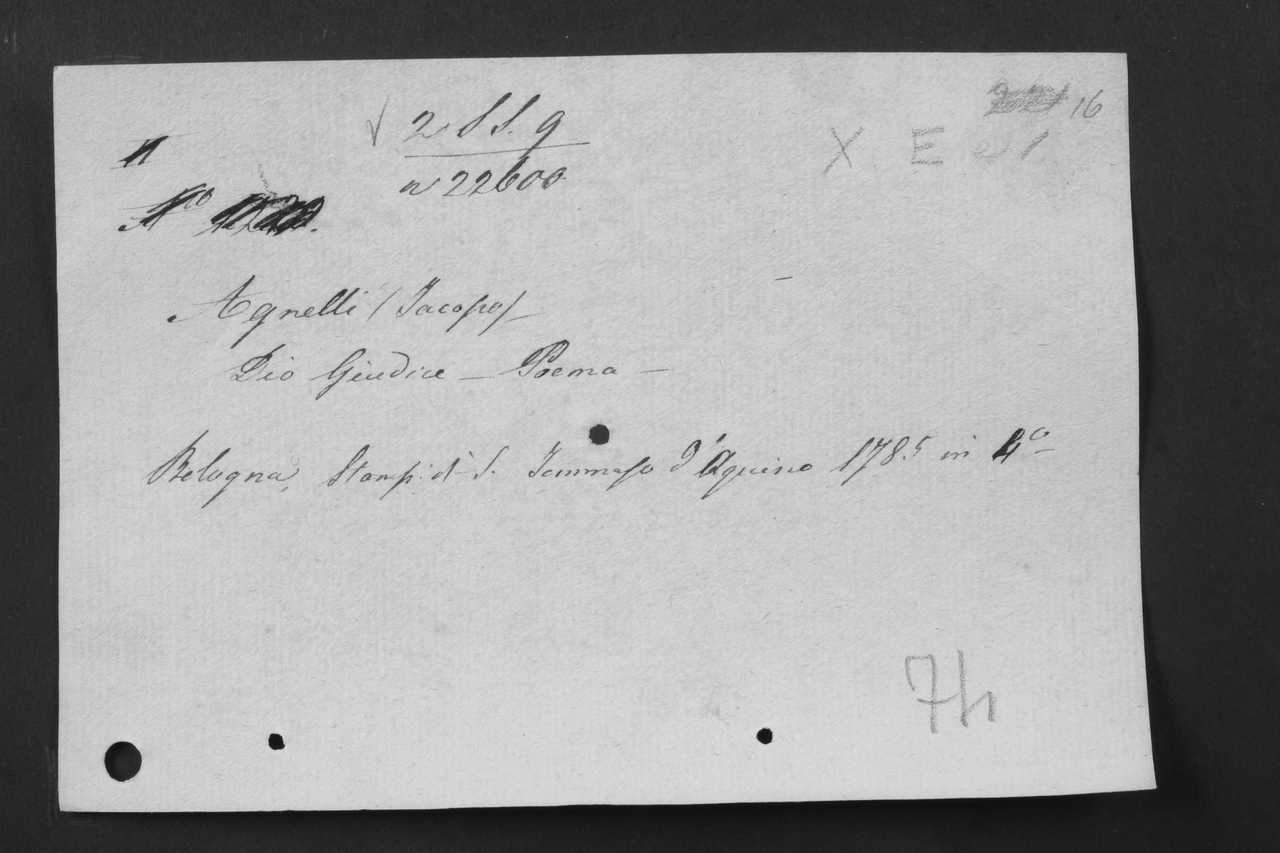 16
X E
2 SS. 9
n 22600
Agnelli (Jacopo) —
Dio Giudice — Poema —
Bologna, Stamp: di S. Tommaso d'Aquino 1785 in 4º
7h